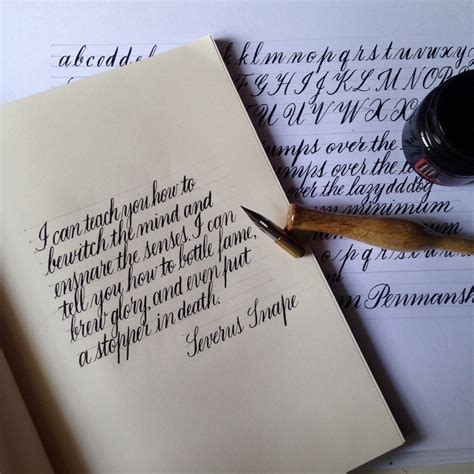 I can teach you how to
bewitch the mind and
ensnare the senses. I can
tell you how to bottle fame,
brew glory, and even put
a stopper in death.
Severus Snape
abcdd
klmnopqrstuvwxy
FGHIJKLMNOP
TUVWXX
umps over the
umps over the la
over the lazy dd dog
minimum
Penmansh